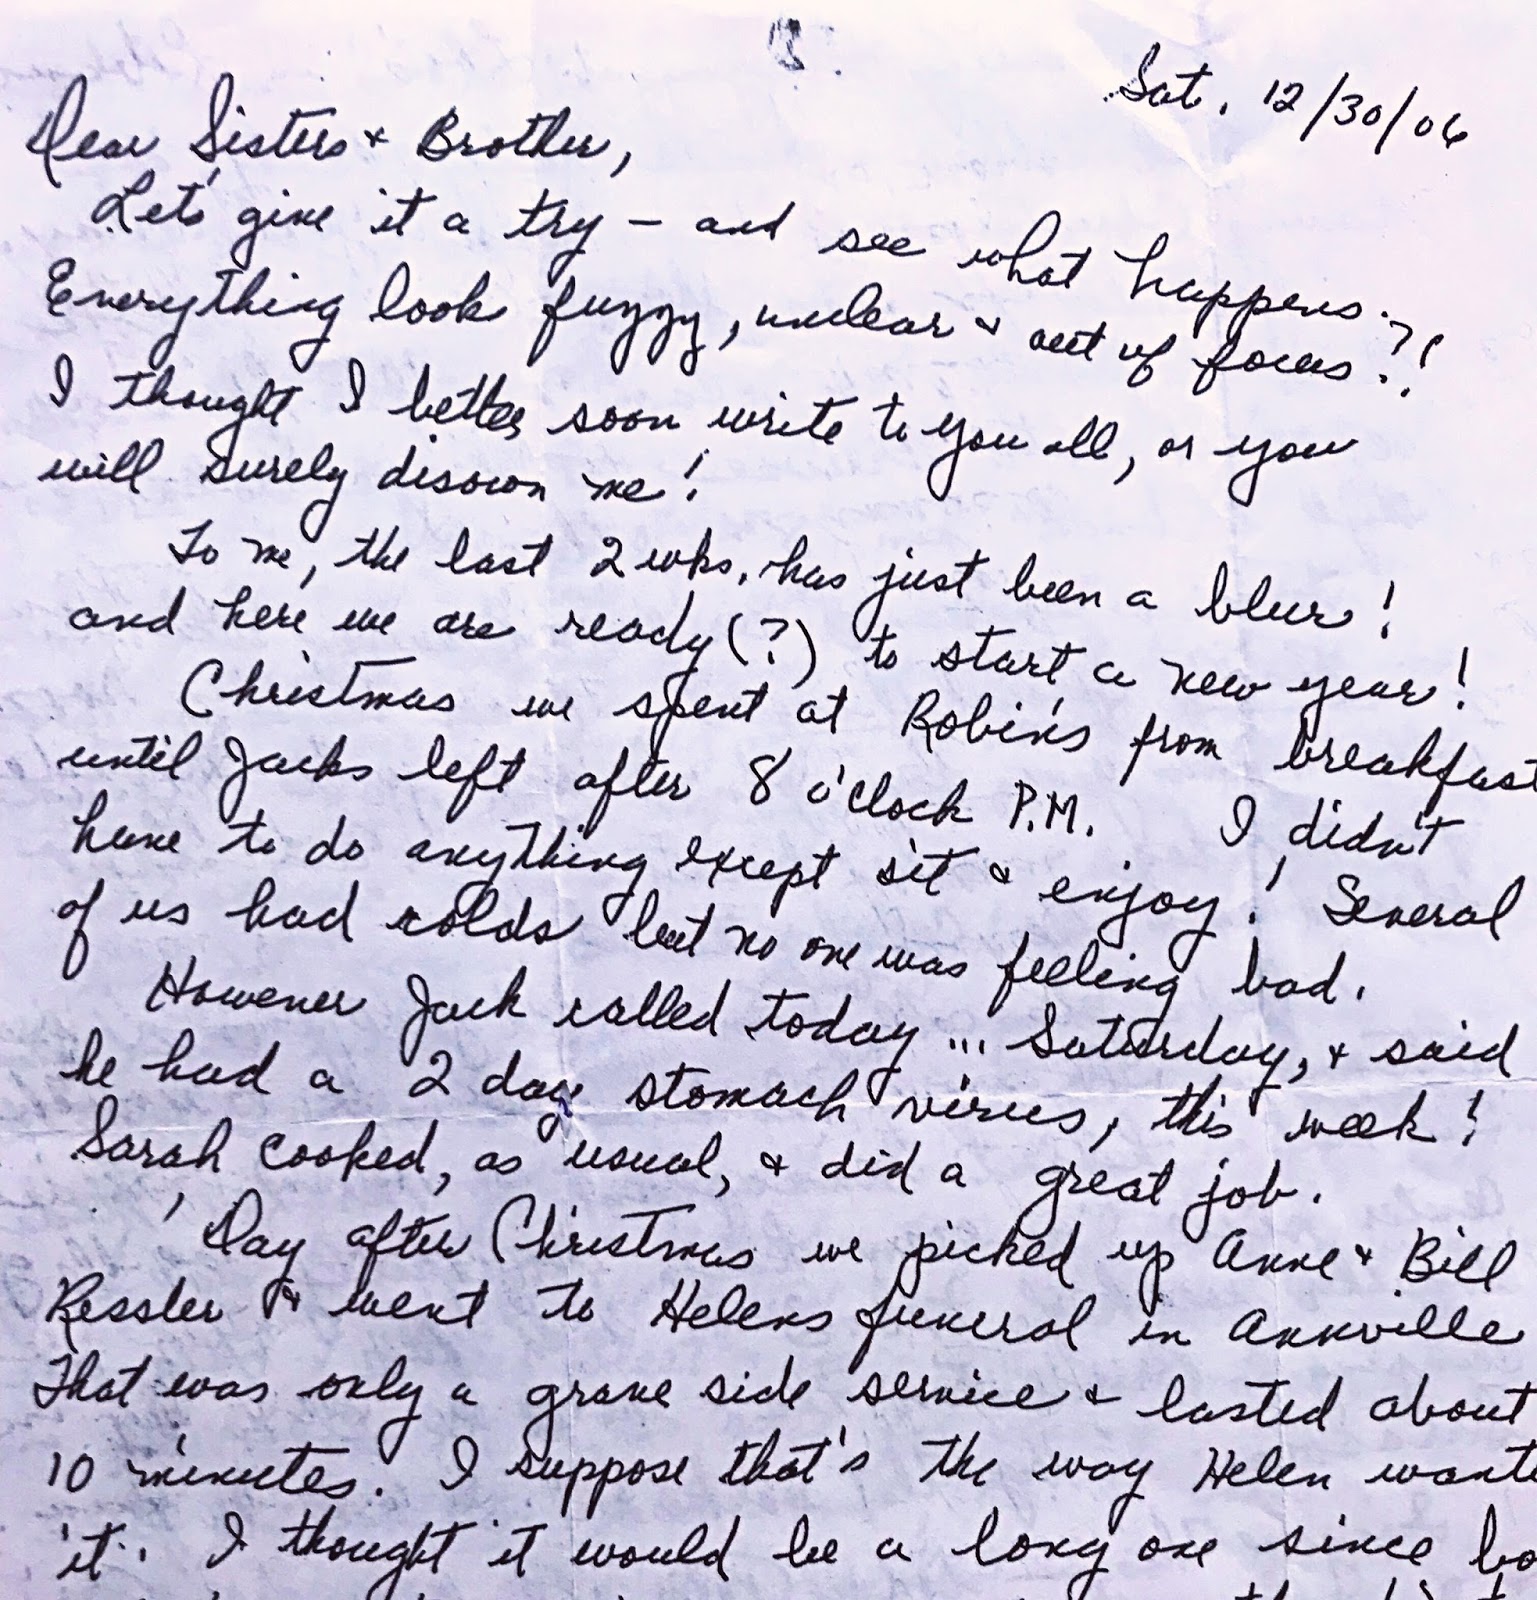 Sat. 12/30/06
Dear Sisters + Brother,
Let's give it a try – and see what happens.
Everything look fuzzy, unclear + out of focus?!
I thought I better soon write to you all, or you
will surely disown me!
To me, the last 2 wks. has just been a blur!
and here we are ready (?) to start a new year!
Christmas we spent at Robin's from breakfast
until Jacks left after 8 o'clock P.M. I didn't
have to do anything except sit + enjoy! Several
of us had colds but no one was feeling bad.
However Jack called today ... Saturday, + said
he had a 2 day stomach virus, this week!
Sarah cooked, as usual, + did a great job.
Day after Christmas we picked up Anne + Bill
Ressler + went to Helens funeral in Annville
That was only a grave side service + lasted about
10 minutes. I suppose that's the way Helen wante
it. I thought it would be a long one since bo